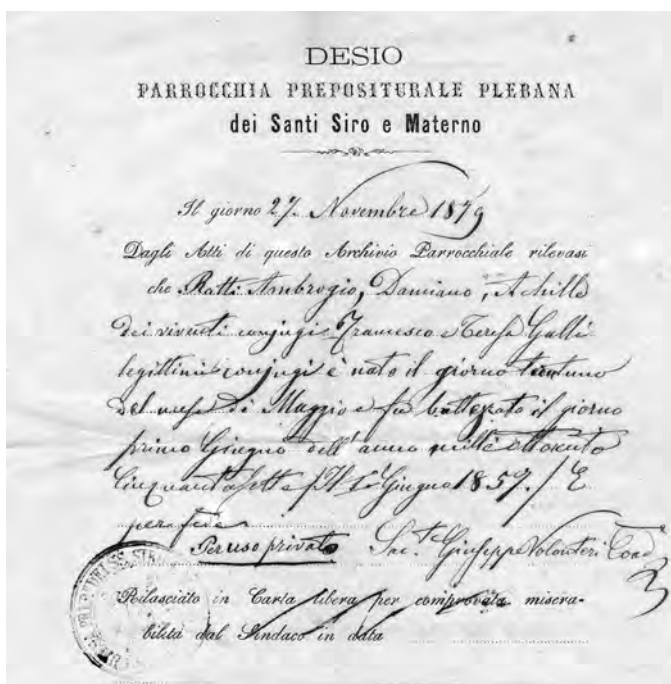 DESIO
PARROCCHIA PREPOSITURALE PLEBANA
dei Santi Siro e Materno
Il giorno 27. Novembre 1879
Dagli Atti di questo Archivio Parrocchiale rilevasi
che Ratti Ambrogio, Damiano, Achille
dei viventi conjugi Francesco e Teresa Galli
legittimi conjugi è nato il giorno trentuno
del mese di Maggio e fu battezato il giorno
primo Giugno dell'anno mille ottocento
Cinquantasette / Il 1° Giugno 1857. / E
per fede
Per uso privato Sac.te Giuseppe Volonteri Coad.
Rilasciato in Carta libera per comprovata misera-
bilità dal Sindaco in data